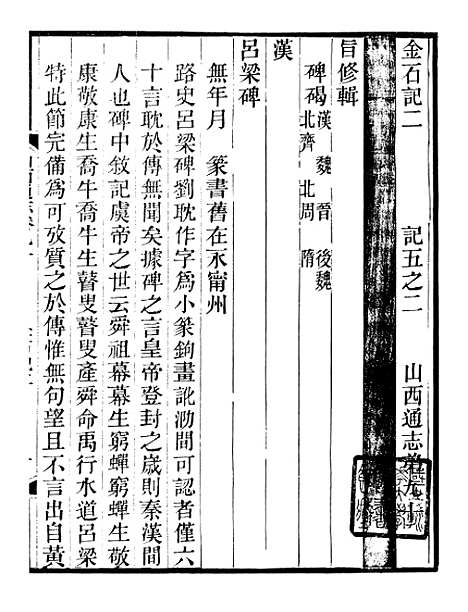 山西通志卷九十
金石記二 記五之二
旨修輯
碑碣漢 魏 晉 後魏
北齊 北周 隋
漢
呂梁碑
無年月 篆書舊在永甯州
路史呂梁碑劉耽作字爲小篆鉤畫訛泐間可認者僅六
十言耽於傳無聞矣據碑之言皇帝登封之歲則秦漢間
人也碑中敘記虞帝之世云舜祖幕幕生窮蟬窮蟬生敬
康敬康生喬牛喬牛生瞽叟瞽叟產舜命禹行水道呂梁
特此節完備爲可攷質之於傳惟無句望且不言出自黃